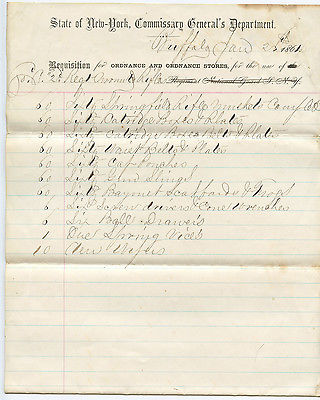 State of New-York, Commissary General's Department.
Buffalo, Jan 25th 1861
Requisition for ORDNANCE AND ORDNANCE STORES, for the use of the
Regiment National Guard S. N. Y.
60 Sixty Springfield Rifle Muskets
60 Sixty Catridge Boxes & Plates
60 Sixty Catridge Boxes Belts & Plates
60 Sixty Waist Belts & Plates
60 Sixty Cap Pouches
60 Sixty Gund Slings
60 Sixty Bayonet Scabbards & Frogs
6 Six Screw drivers & Cone Wrenches
6 Six Ball Drawers
1 One Spring Vice
10 Ten Wipers